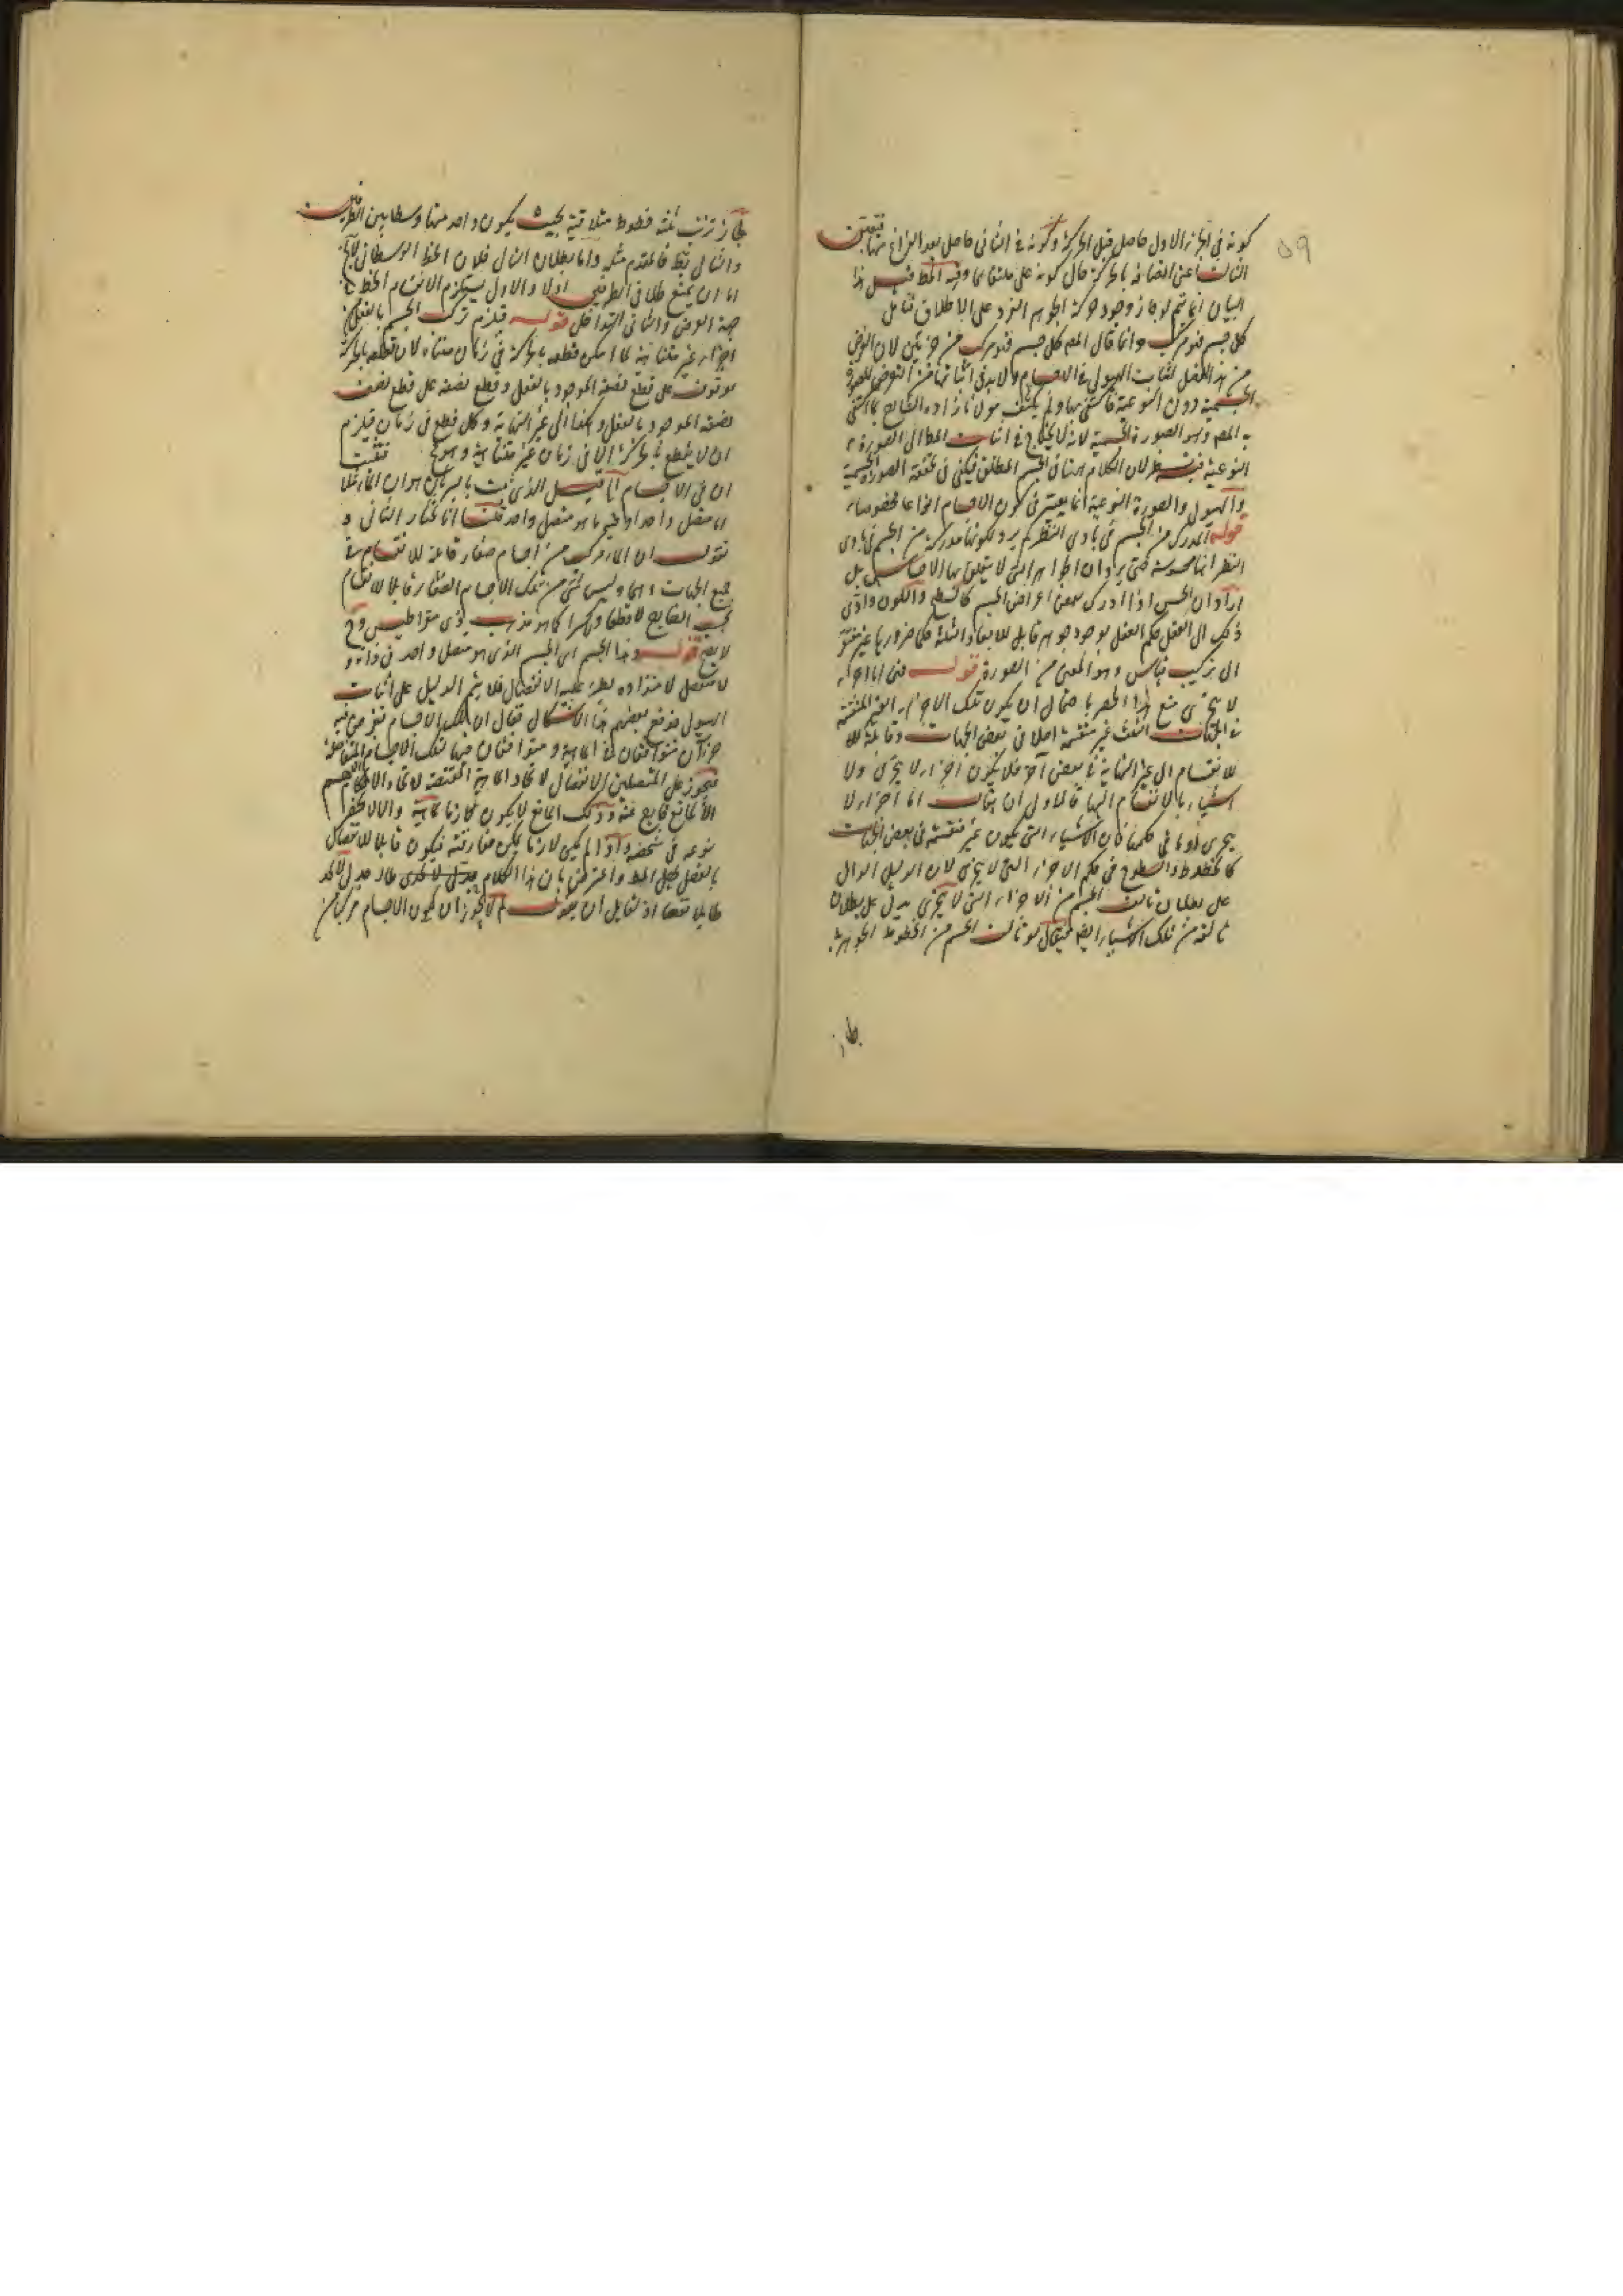 كونه فى الجزء الاول حاصل قبل الحركة وكونه فى الثانى حاصل بعد الفراغ منها فتعين
الثالث اعنى اتصافه بالحركة حال كونه على ملتقاهما وفيه المط قيل هذا
البيان انما يتم لو جاز وجود حركة الجوهر الفرد على الاطلاق تأمل
كل جسم فهو مركب وانما قال المص كل جسم فهو مركب من جزئين لان الغرض
من هذا الفصل اثبات الهيولى فى الاجسام ولابد فى اثباتها من التعرض للصورة
الجسمية دون النوعية فاكتفى بها ولم يكتف مولانا زاده الشارح بما اكتفى
به المص وهو الصورة الجسمية لانه لا يحتاج فى اثبات المطا الى الصورة
النوعية فيه نظر لان الكلام هنا فى الجسم المطلق فيكفى فى تحققه الصورة الجسمية
والهيولى والصورة النوعية انما يعتبر فى كون الاجسام انواعا مخصوصة
قوله المدرك من الجسم فى بادى النظر لم يرد بكونها مدركة من الجسم فى بادى
النظر انها محسوسة حتى يرد ان الجواهر التى لا يتعلق بها الاحساس بل
اراد ان الحس اذا ادرك بعض اعراض الجسم كالسطح واللون وادى
ذلك الى العقل حكم العقل بوجود جوهر قابل للابعاد الثلثة حكما ضروريا غير مفتقر
الى تركيب قياس وهو المعنى من الصورة قوله فهى اما اجزاء
لا يتجزى منع هذا الحصر باحتمال ان يكون تلك الاجزاء الغير المنقسمة
فى الجهات الثلث غير منقسمة اصلا فى بعض الجهات وقابلة
للانقسام الى غير النهاية فى بعض آخر فلا يكون اجزاء لا يتجزى ولا
اشياء بالانقسام اليها فالاولى ان يقال اما اجزاء لا
يتجزى او ما فى حكمها فان الاشياء التى يكون غير منقسمة فى بعض الجهات
كالخطوط والسطوح فى حكم الاجزاء التى لا يتجزى لان الدليل الدال
على بطلان تألف الجسم من الاجزاء التى لا يتجزى يدل على بطلان
تألفه من تلك الاشياء ايضا فيقال لو تألف الجسم من الخطوط الجوهرية
لجاز
لجاز ترتب ثلثة خطوط متلاقية بحيث يكون واحد منها وسطا بين الطرفين
والتالى بط فالمقدم مثله واما بطلان التالى فلان الخط الوسطانى
اما ان يمنع تلاقى الطرفين اولا والاول يستلزم الانقسام الخط فى
جهة العرض والثانى التداخل قوله فيلزم تركب الجسم بالفعل من
اجزاء غير متناهية لما امكن قطعه بالحركة فى زمان متناه لان قطعه بالحركة
موقوف على قطع نصفه الموجود بالفعل وقطع نصفه على قطع نصف
نصفه الموجود بالفعل وهكذا الى غير النهاية وكل قطع فى زمان فيلزم
ان لا يقطع بالحركة الا فى زمان غير متناهية وهو مح فثبت
ان فى الاجسام آه قيل الذى ثبت بالبرهان هو ان الماء مثلا
اما متصل واحد او فيه ما هو متصل واحد قلنا انا نختار الثانى و
نقول ان الماء مركب من اجسام صغار قابلة للانقسام فى
جميع الجهات وهما وليس شئ من تلك الاجسام الصغار قابلا للانقسام
بحسب الخارج لا قطعا ولا كسرا كما هو مذهب ذى مقراطيس وح
لا يصح قوله وهذا الجسم اى الجسم الذى هو متصل واحد فى ذاته
لا مفصل لامتداده يطرء عليه الانفصال فلا يتم الدليل على اثبات
الهيولى فدفع بعضهم هذا الاشكال فقال ان تلك الاجسام تفرض فيه
جزآن متوافقان فى الماهية ومتوافقان فيها لتلك الاجسام المتفاصلة
فيجوز على المتصلين الانفصال لاتحاد الماهية المقتضية لاتحاد الاحكام
الا لمانع خارج عنه وذلك المانع لا يكون لازما لماهية والا لانحصر
نوعه فى شخصه واذا لم يكن لازما يمكن مفارقته فيكون قابلا للانفصال
بالفعل فيحصل المط واعترض بان هذا الكلام جدلى لا تجدى
طائلا نفعا اذ لقايل ان يقول لم لا يجوز ان يكون الاجسام مركبا من